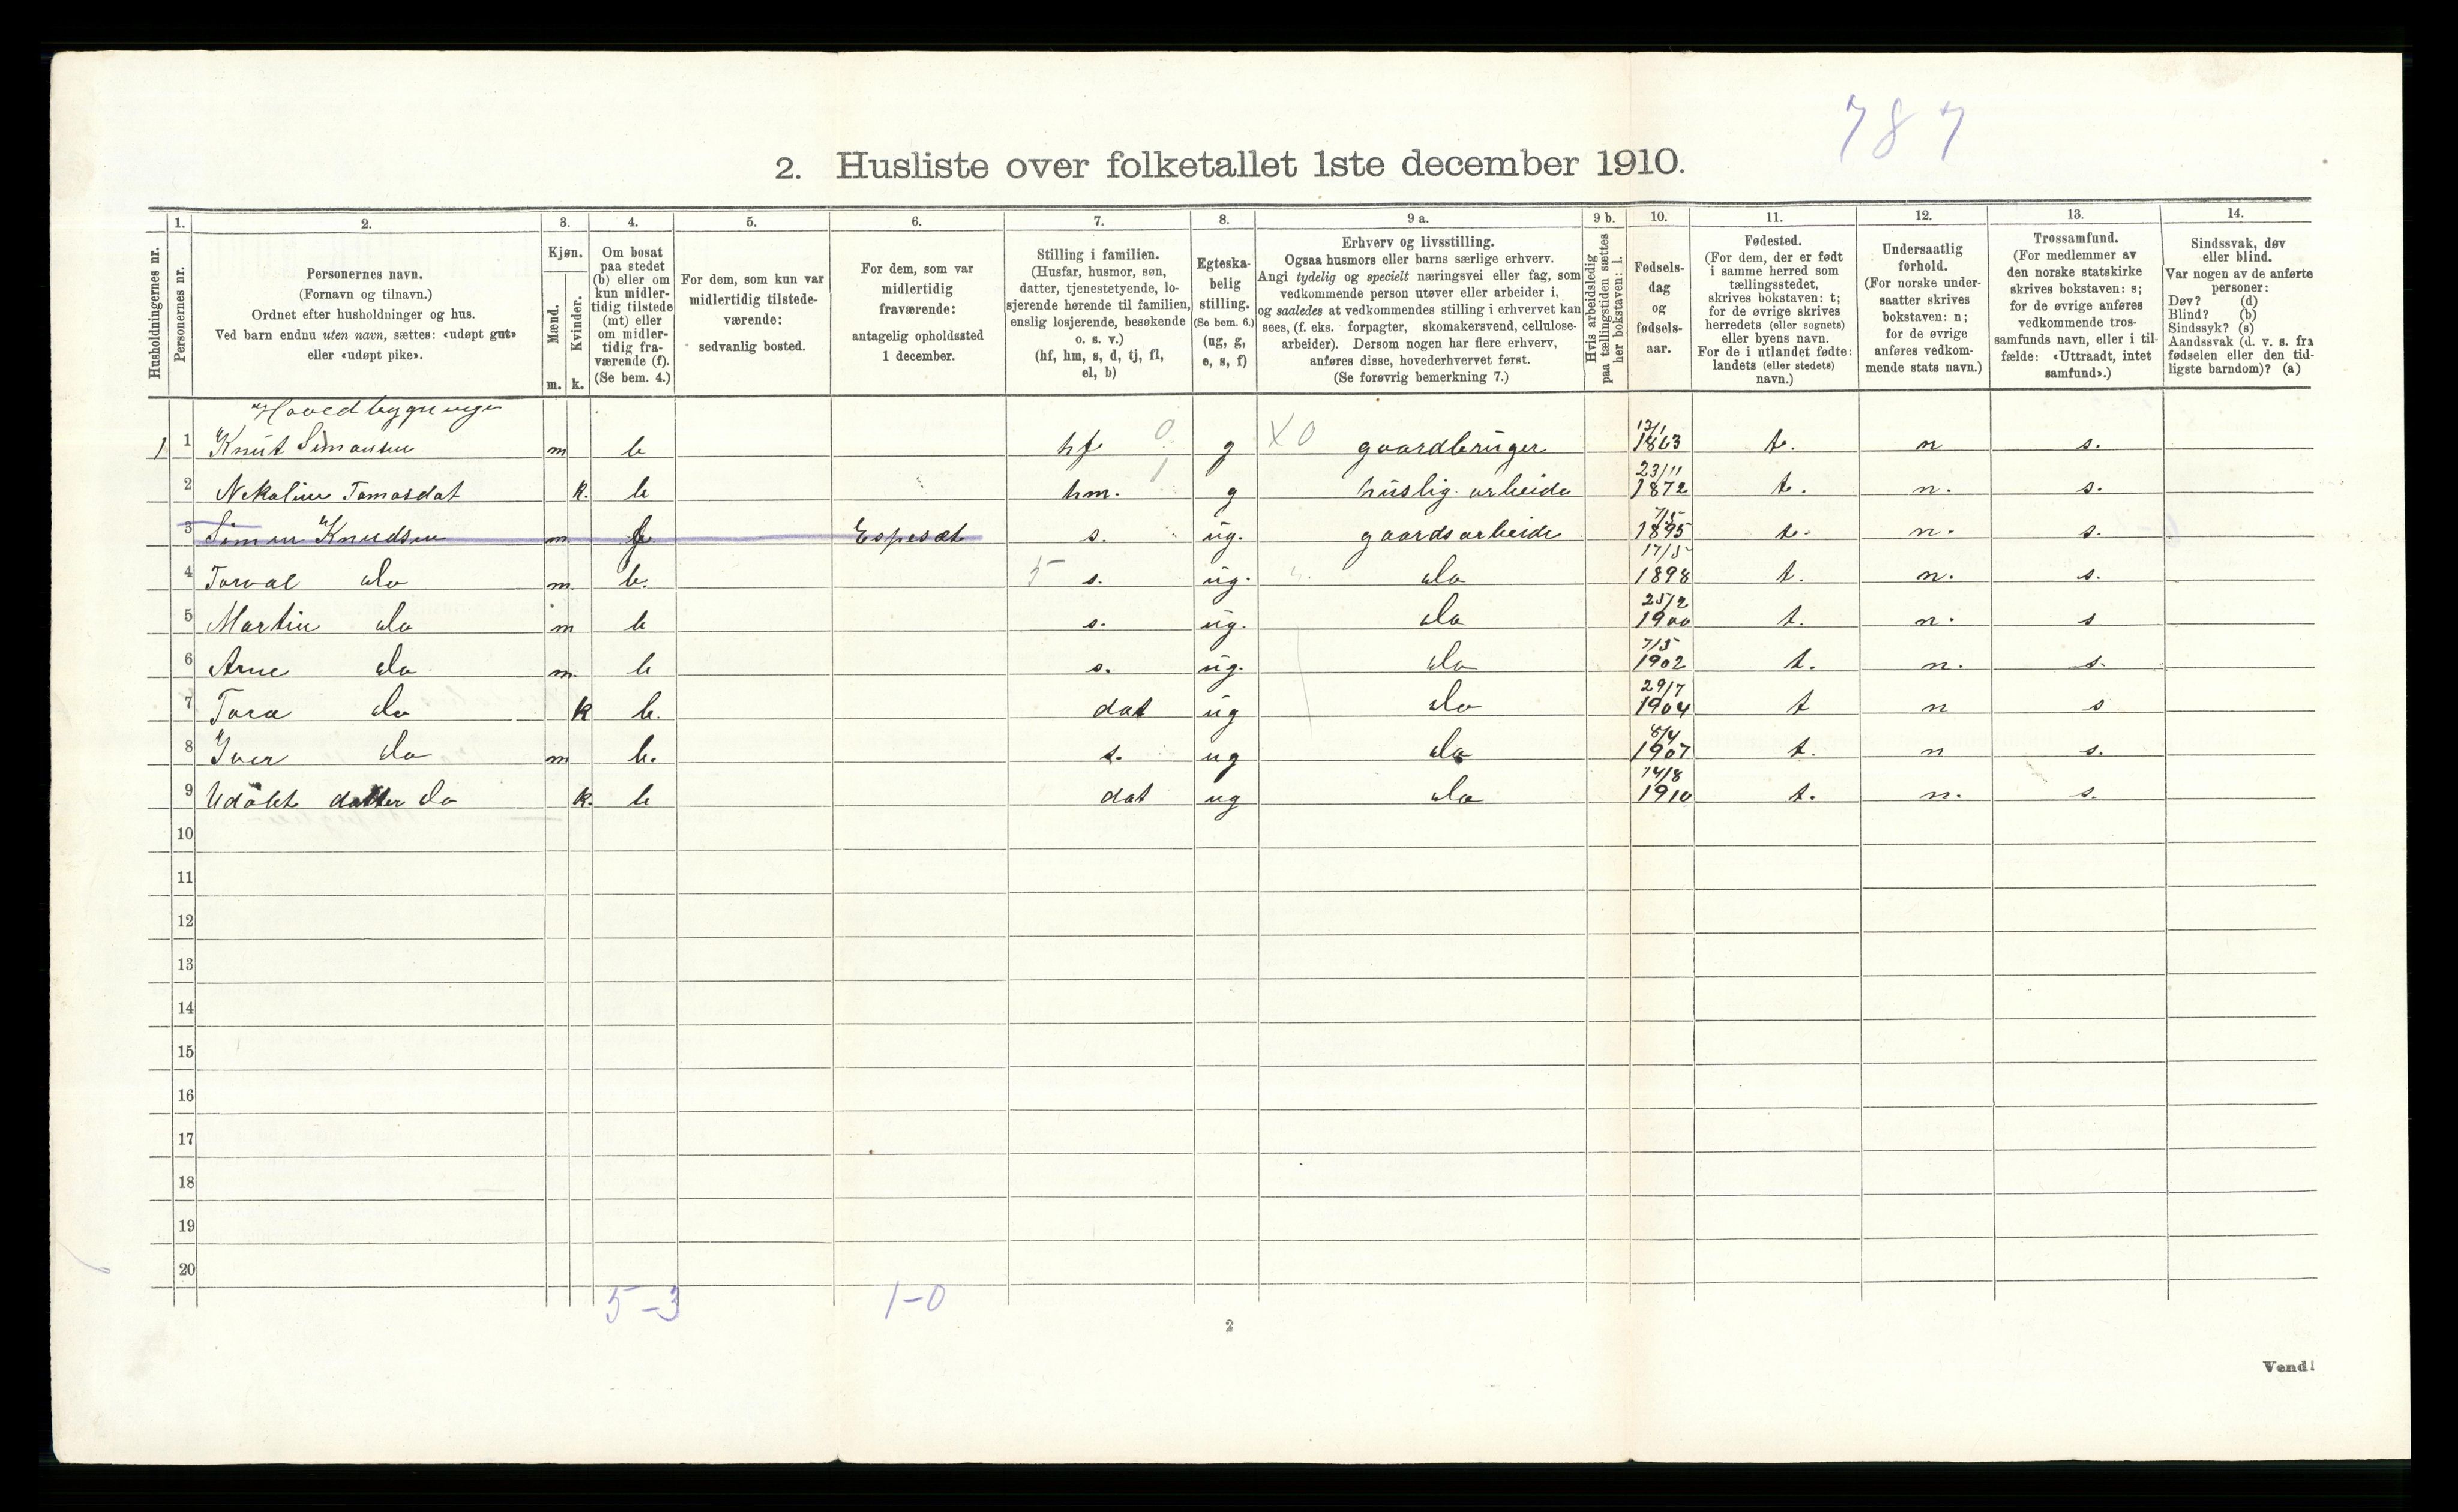 787
2. Husliste over folketallet 1ste december 1910.
Husholdningernes nr.
1.
Personernes nr.
2.
Personernes navn.
(Fornavn og tilnavn.)
Ordnet efter husholdninger og hus.
Ved barn endnu uten navn, sættes: «udøpt gut»
eller «udøpt pike».
3.
Kjøn.
Mænd.
Kvinder.
m. k.
4.
Om bosat
paa stedet
(b) eller om
kun midler-
tidig tilstede
(mt) eller
om midler-
tidig fra-
værende (f).
(Se bem. 4.)
5.
For dem, som kun var
midlertidig tilstede-
værende:
sedvanlig bosted.
6.
For dem, som var
midlertidig
fraværende:
antagelig opholdssted
1 december.
7.
Stilling i familien.
(Husfar, husmor, søn,
datter, tjenestetyende, lo-
sjerende hørende til familien,
enslig losjerende, besøkende
o. s. v.)
(hf, hm, s, d, tj, fl,
el, b)
8.
Egteska-
belig
stilling.
(Se bem. 6.)
(ug, g,
e, s, f)
9 a.
Erhverv og livsstilling.
Ogsaa husmors eller barns særlige erhverv.
Angi tydelig og specielt næringsvei eller fag, som
vedkommende person utøver eller arbeider i,
og saaledes at vedkommendes stilling i erhvervet kan
sees, (f. eks. forpagter, skomakersvend, cellulose-
arbeider). Dersom nogen har flere erhverv,
anføres disse, hovederhvervet først.
(Se forøvrig bemerkning 7.)
9 b.
Hvis arbeidsledig
paa tællingstiden sættes
her bokstaven: l.
10.
Fødsels-
dag
og
fødsels-
aar.
11.
Fødested.
(For dem, der er født
i samme herred som
tællingsstedet,
skrives bokstaven: t;
for de øvrige skrives
herredets (eller sognets)
eller byens navn.
For de i utlandet fødte:
landets (eller stedets)
navn.)
12.
Undersaatlig
forhold.
(For norske under-
saatter skrives
bokstaven: n;
for de øvrige
anføres vedkom-
mende stats navn.)
13.
Trossamfund.
(For medlemmer av
den norske statskirke
skrives bokstaven: s;
for de øvrige anføres
vedkommende tros-
samfunds navn, eller i til-
fælde: «Uttraadt, intet
samfund».)
14.
Sindssvak, døv
eller blind.
Var nogen av de anførte
personer:
Døv? (d)
Blind? (b)
Sindssyk? (s)
Aandssvak (d. v. s. fra
fødselen eller den tid-
ligste barndom)? (a)
Hovedbygninger
1 1 Knut Simonsen m b hf 0 g X 0 gaardbruger 13/1 1863 t. n s.
2 Nekoline Tomasdat k. b hm. 1 g huslig arbeide 23/11 1872 t. n. s.
3 Simen Knudsen m f Espesæt s. ug. gaardsarbeide 7/5 1895 t. n. s.
4 Torval do m. b. 5 s. ug. do 17/5 1898 t. n. s.
5 Martin do m b s. ug. do 25/2 1900 t. n. s
6 Arne do m. b s. ug. do 7/5 1902 t. n. s.
7 Tora do k b. dat ug do 29/7 1904 t n s
8 Iver do m b. s. ug do 8/4 1907 t. n s.
9 Udøbt datter do k. b dat ug do 14/8 1910 t. n. s.
10
11
12
13
14
15
16
17
18
19
20
5-3 1-0
2
Vend!